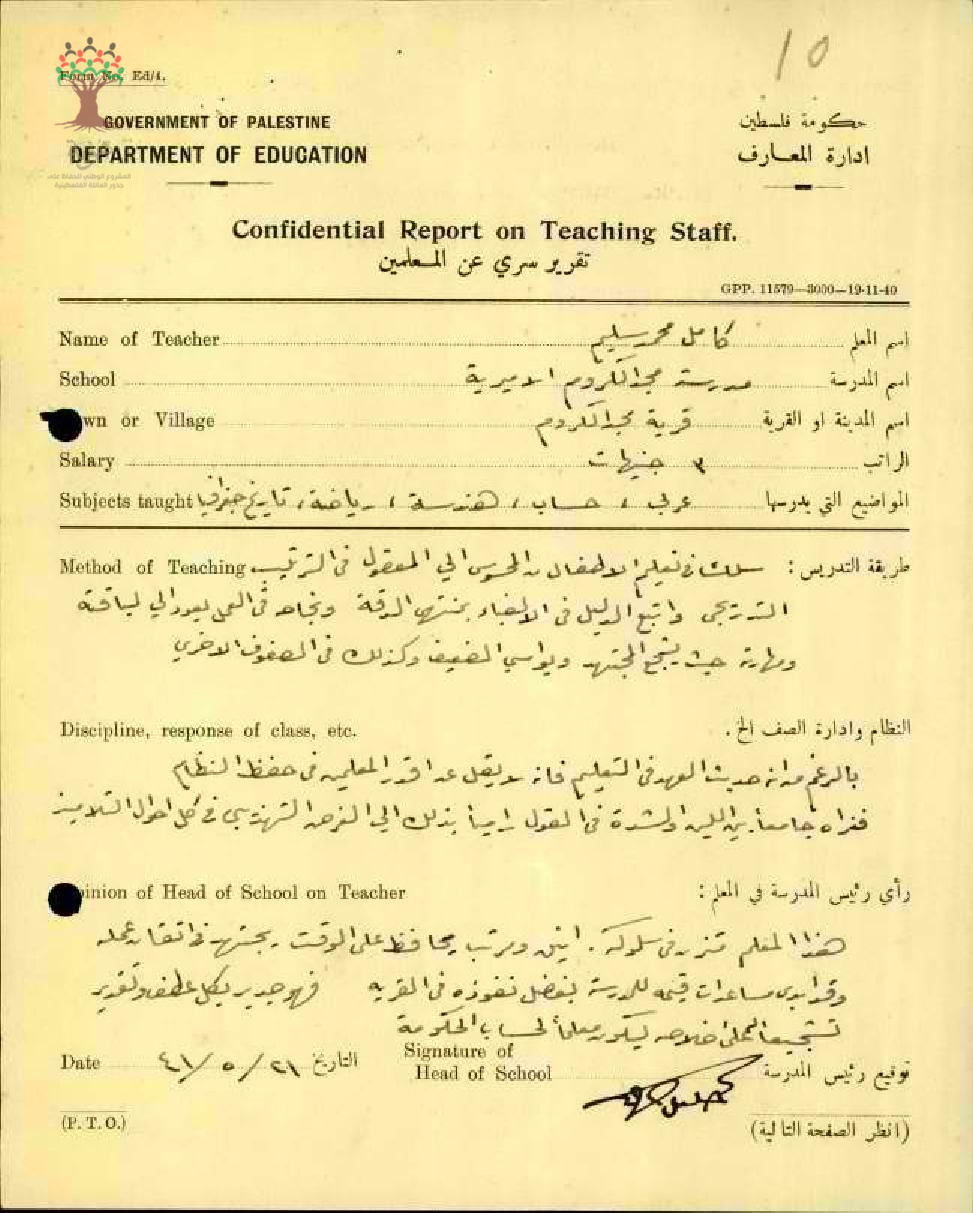 10
Form No. Ed/4.
GOVERNMENT OF PALESTINE
حكومة فلسطين
DEPARTMENT OF EDUCATION
ادارة المعارف
المشروع الوطني للحفاظ على
جذور العائلة الفلسطينية
Confidential Report on Teaching Staff.
تقرير سري عن المعلمين
GPP. 11579—3000—19-11-40
Name of Teacher كامل محمد سليم اسم المعلم
School مدرسة مجد الكروم الاميرية اسم المدرسة
wn or Village قرية مجد الكروم اسم المدينة او القرية
Salary ٣ جنيهات الراتب
Subjects taught عربي ، حساب ، هندسة ، رياضة ، تاريخ جغرافيا المواضيع التي يدرسها
Method of Teaching طريقة التدريس : سلك في تعليم الاطفال من المحسوس الى المعقول في الترتيب
التدريجي واتبع الدليل في الالفباء بمنتهى الدقة ونجاحه في العمل يعود الى لباقته
ومهارته حيث يشجع المجتهد ويواسي الضعيف وكذلك في الصفوف الاخرى
Discipline, response of class, etc. النظام وادارة الصف الخ .
بالرغم من انه حديث العهد في التعليم فانه لا يقل عن اقدر المعلمين في حفظ النظام
فتراه جامعاً بين اللين والشدة في القول رامياً بذلك الى الغرض التهذيبي في كل احوال التلاميذ
inion of Head of School on Teacher رأي رئيس المدرسة في المعلم :
هذا المعلم متزن في سلوكه . انيق ومرتب يحافظ على الوقت يجتهد في اتقان عمله
وقد ابدى مساعدات قيمه للمدرسة بفضل نفوذه في القريه فهو جدير بكل عطف وتقدير
تشجيعاً ليكون معلماً لحساب الحكومة
Date ٢١ / ٥ / ٤١ التاريخ
Signature of
Head of School توقيع رئيس المدرسة
(P. T. O.)
(انظر الصفحة التالية)